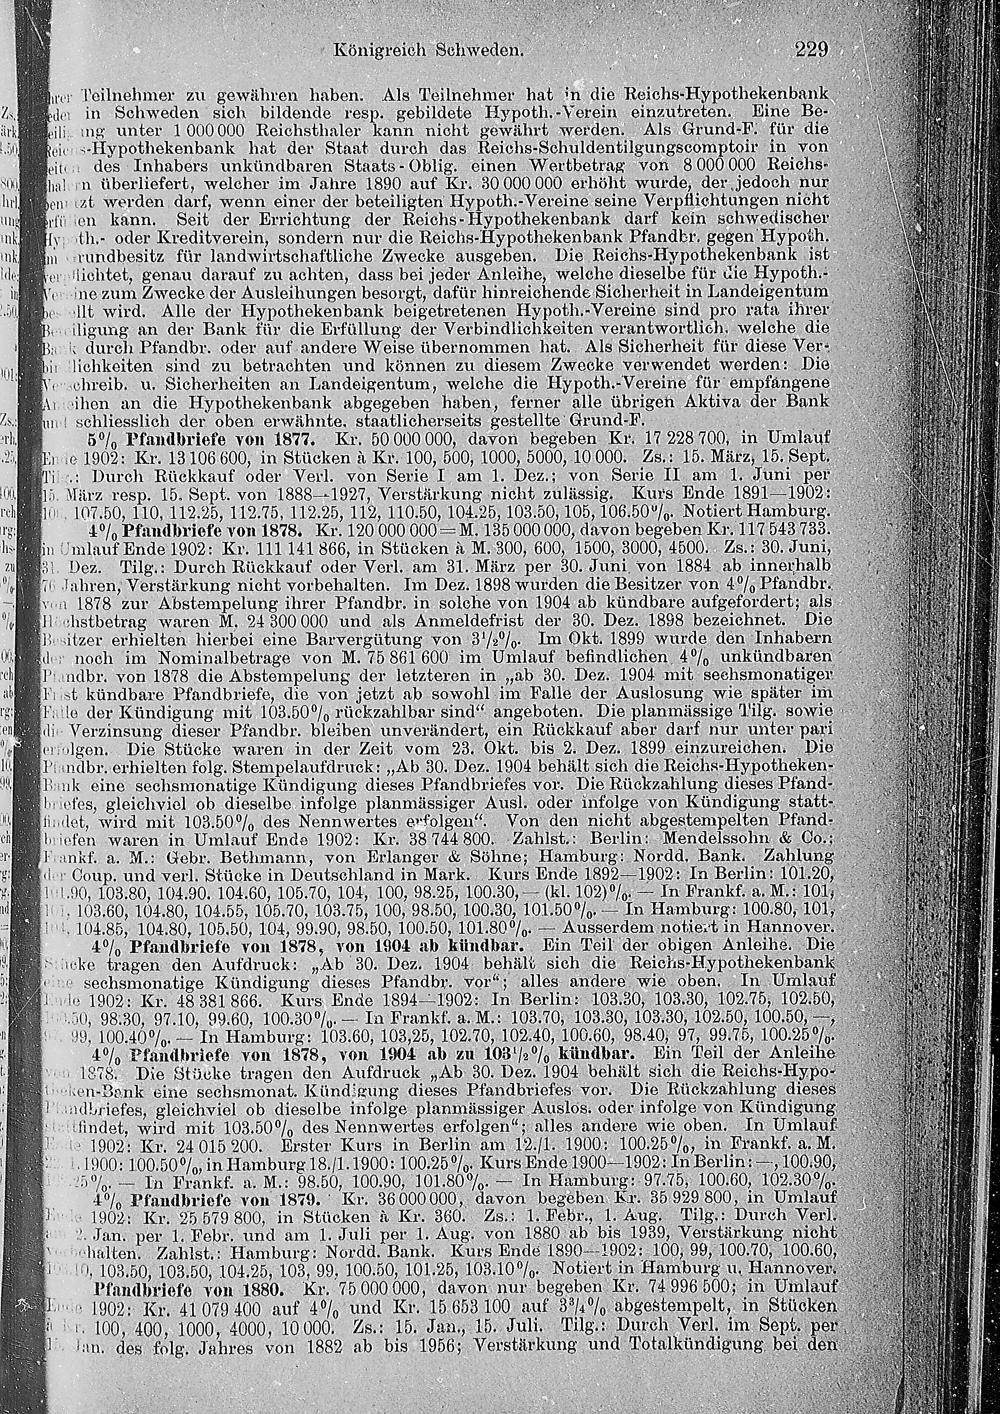 Königreich Schweden. 229
Teilnehmer zu gewähren haben. Als Teilnehmer hat in die Reichs-Hypothekenbank
in Schweden sich bildende resp. gebildete Hypoth.-Verein einzutreten. Eine Be-
unter 1 000 000 Reichsthaler kann nicht gewährt werden. Als Grund-F. für die
-Hypothekenbank hat der Staat durch das Reichs-Schuldentilgungscomptoir in von
des Inhabers unkündbaren Staats-Oblig. einen Wertbetrag von 8 000 000 Reichs-
überliefert, welcher im Jahre 1890 auf Kr. 30 000 000 erhöht wurde, der jedoch nur
werden darf, wenn einer der beteiligten Hypoth.-Vereine seine Verpflichtungen nicht
kann. Seit der Errichtung der Reichs-Hypothekenbank darf kein schwedischer
oder Kreditverein, sondern nur die Reichs-Hypothekenbank Pfandbr. gegen Hypoth.
für landwirtschaftliche Zwecke ausgeben. Die Reichs-Hypothekenbank ist
genau darauf zu achten, dass bei jeder Anleihe, welche dieselbe für die Hypoth.-
zum Zwecke der Ausleihungen besorgt, dafür hinreichende Sicherheit in Landeigentum
wird. Alle der Hypothekenbank beigetretenen Hypoth.-Vereine sind pro rata ihrer
an der Bank für die Erfüllung der Verbindlichkeiten verantwortlich, welche die
durch Pfandbr. oder auf andere Weise übernommen hat. Als Sicherheit für diese Ver-
sind zu betrachten und können zu diesem Zwecke verwendet werden: Die
u. Sicherheiten an Landeigentum, welche die Hypoth.-Vereine für empfangene
an die Hypothekenbank abgegeben haben, ferner alle übrigen Aktiva der Bank
schliesslich der oben erwähnte, staatlicherseits gestellte Grund-F.
5% Pfandbriefe von 1877. Kr. 50 000 000, davon begeben Kr. 17 228 700, in Umlauf
Ende 1902: Kr. 13 106 600, in Stücken à Kr. 100, 500, 1000, 5000, 10 000. Zs.: 15. März, 15. Sept.
Durch Rückkauf oder Verl. von Serie I am 1. Dez.; von Serie II am 1. Juni per
15. März resp. 15. Sept. von 1888—1927, Verstärkung nicht zulässig. Kurs Ende 1891—1902:
107.50, 110, 112.25, 112.75, 112.25, 112, 110.50, 104.25, 103.50, 105, 106.50%. Notiert Hamburg.
4% Pfandbriefe von 1878. Kr. 120 000 000 = M. 135 000 000, davon begeben Kr. 117 543 733.
in Umlauf Ende 1902: Kr. 111 141 866, in Stücken à M. 300, 600, 1500, 3000, 4500. Zs.: 30. Juni,
31. Dez. Tilg.: Durch Rückkauf oder Verl. am 31. März per 30. Juni von 1884 ab innerhalb
76 Jahren, Verstärkung nicht vorbehalten. Im Dez. 1898 wurden die Besitzer von 4% Pfandbr.
von 1878 zur Abstempelung ihrer Pfandbr. in solche von 1904 ab kündbare aufgefordert; als
Höchstbetrag waren M. 24 300 000 und als Anmeldefrist der 30. Dez. 1898 bezeichnet. Die
Besitzer erhielten hierbei eine Barvergütung von 3½%. Im Okt. 1899 wurde den Inhabern
der noch im Nominalbetrage von M. 75 861 600 im Umlauf befindlichen 4% unkündbaren
Pfandbr. von 1878 die Abstempelung der letzteren in „ab 30. Dez. 1904 mit sechsmonatiger
Frist kündbare Pfandbriefe, die von jetzt ab sowohl im Falle der Auslosung wie später im
Falle der Kündigung mit 103.50% rückzahlbar sind“ angeboten. Die planmässige Tilg. sowie
die Verzinsung dieser Pfandbr. bleiben unverändert, ein Rückkauf aber darf nur unter pari
erfolgen. Die Stücke waren in der Zeit vom 23. Okt. bis 2. Dez. 1899 einzureichen. Die
Pfandbr. erhielten folg. Stempelaufdruck: „Ab 30. Dez. 1904 behält sich die Reichs-Hypotheken-
Bank eine sechsmonatige Kündigung dieses Pfandbriefes vor. Die Rückzahlung dieses Pfand-
briefes, gleichviel ob dieselbe infolge planmässiger Ausl. oder infolge von Kündigung statt-
findet, wird mit 103.50% des Nennwertes erfolgen“. Von den nicht abgestempelten Pfand-
briefen waren in Umlauf Ende 1902: Kr. 38 744 800. Zahlst.: Berlin: Mendelssohn & Co.;
Frankf. a. M.: Gebr. Bethmann, von Erlanger & Söhne; Hamburg: Nordd. Bank. Zahlung
der Coup. und verl. Stücke in Deutschland in Mark. Kurs Ende 1892—1902: In Berlin: 101.20,
101.90, 103.80, 104.90, 104.60, 105.70, 104, 100, 98.25, 100.30, — (kl. 102)%. — In Frankf. a. M.: 101,
103.60, 104.80, 104.55, 105.70, 103.75, 100, 98.50, 100.30, 101.50%. — In Hamburg: 100.80, 101,
104.85, 104.80, 105.50, 104, 99.90, 98.50, 100.50, 101.80%. — Ausserdem notiert in Hannover.
4% Pfandbriefe von 1878, von 1904 ab kündbar. Ein Teil der obigen Anleihe. Die
Stücke tragen den Aufdruck: „Ab 30. Dez. 1904 behält sich die Reichs-Hypothekenbank
eine sechsmonatige Kündigung dieses Pfandbr. vor“; alles andere wie oben. In Umlauf
Ende 1902: Kr. 48 381 866. Kurs Ende 1894—1902: In Berlin: 103.30, 103.30, 102.75, 102.50,
98.30, 97.10, 99.60, 100.30%. — In Frankf. a. M.: 103.70, 103.30, 103.30, 102.50, 100.50, —,
99, 100.40%. — In Hamburg: 103.60, 103,25, 102.70, 102.40, 100.60, 98.40, 97, 99.75, 100.25%.
4% Pfandbriefe von 1878, von 1904 ab zu 103½% kündbar. Ein Teil der Anleihe
von 1878. Die Stücke tragen den Aufdruck „Ab 30. Dez. 1904 behält sich die Reichs-Hypo-
theken-Bank eine sechsmonat. Kündigung dieses Pfandbriefes vor. Die Rückzahlung dieses
Pfandbriefes, gleichviel ob dieselbe infolge planmässiger Auslos. oder infolge von Kündigung
stattfindet, wird mit 103.50% des Nennwertes erfolgen“; alles andere wie oben. In Umlauf
Ende 1902: Kr. 24 015 200. Erster Kurs in Berlin am 12./1. 1900: 100.25%, in Frankf. a. M.
1900: 100.50%, in Hamburg 18./1. 1900: 100.25%. Kurs Ende 1900—1902: In Berlin: —, 100.90,
— In Frankf. a. M.: 98.50, 100.90, 101.80%. — In Hamburg: 97.75, 100.60, 102.30%.
4% Pfandbriefe von 1879. Kr. 36 000 000, davon begeben Kr. 35 929 800, in Umlauf
Ende 1902: Kr. 25 579 800, in Stücken à Kr. 360. Zs.: 1. Febr., 1. Aug. Tilg.: Durch Verl.
am 2. Jan. per 1. Febr. und am 1. Juli per 1. Aug. von 1880 ab bis 1939, Verstärkung nicht
vorbehalten. Zahlst.: Hamburg: Nordd. Bank. Kurs Ende 1890—1902: 100, 99, 100.70, 100.60,
103.50, 103.50, 104.25, 103, 99, 100.50, 101.25, 103.10%. Notiert in Hamburg u. Hannover.
Pfandbriefe von 1880. Kr. 75 000 000, davon nur begeben Kr. 74 996 500; in Umlauf
Ende 1902: Kr. 41 079 400 auf 4% und Kr. 15 653 100 auf 3¾% abgestempelt, in Stücken
à Kr. 100, 400, 1000, 4000, 10 000. Zs.: 15. Jan., 15. Juli. Tilg.: Durch Verl. im Sept. per
15. Jan. des folg. Jahres von 1882 ab bis 1956; Verstärkung und Totalkündigung bei den